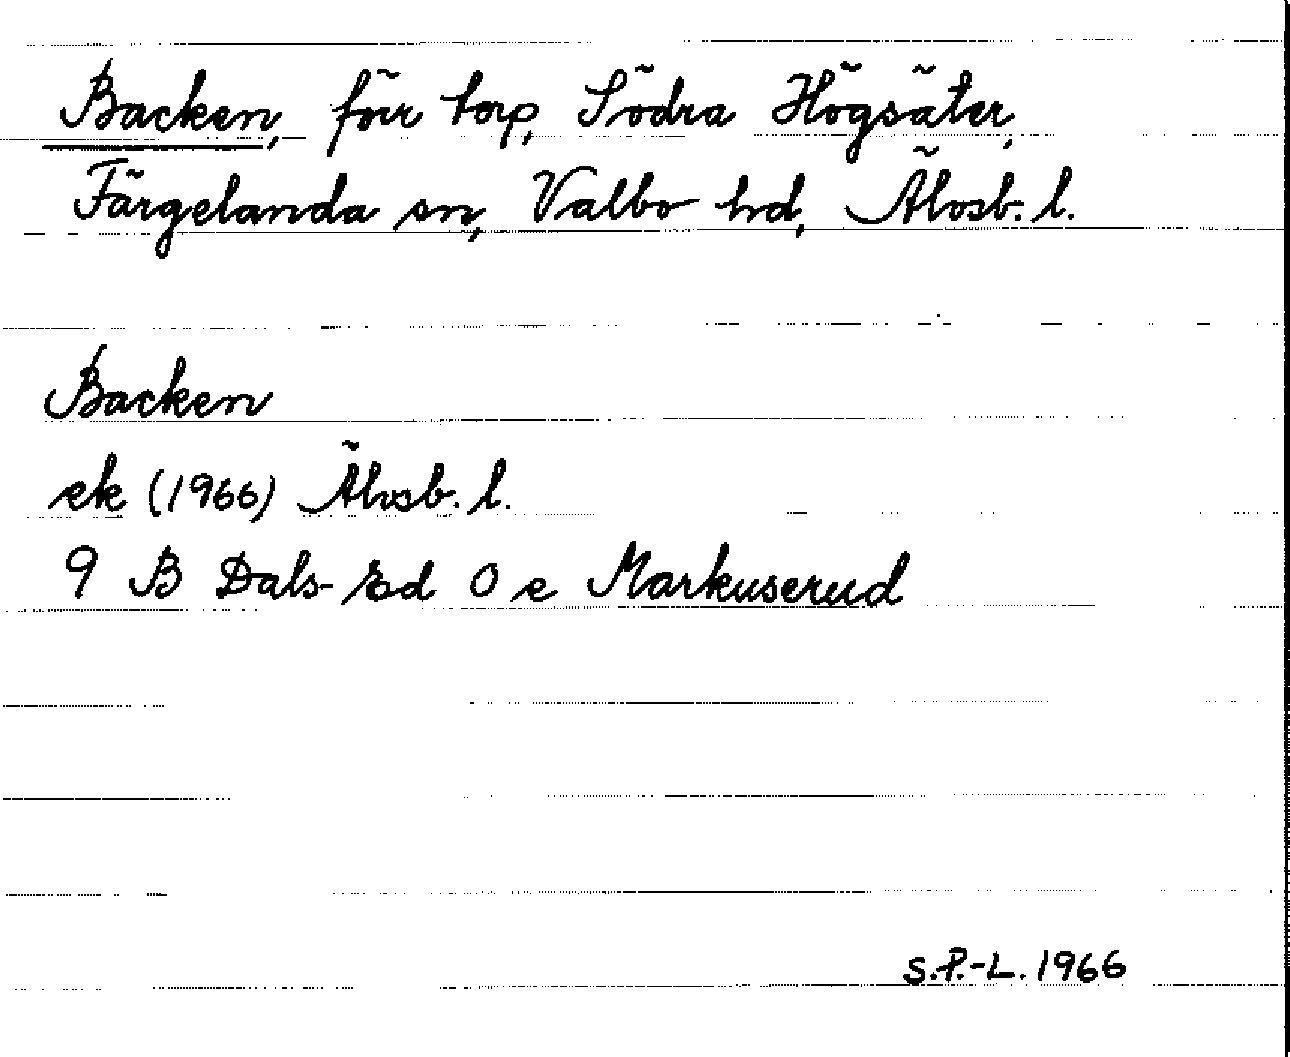 Backen, förr torp, Södra Högsäter,
Färgelanda sn, Valbo hd, Älvsb. l.
Backen
ek (1966) Älvsb. l.
9 B Dals-Ed O e Markuserud
S.P.-L. 1966